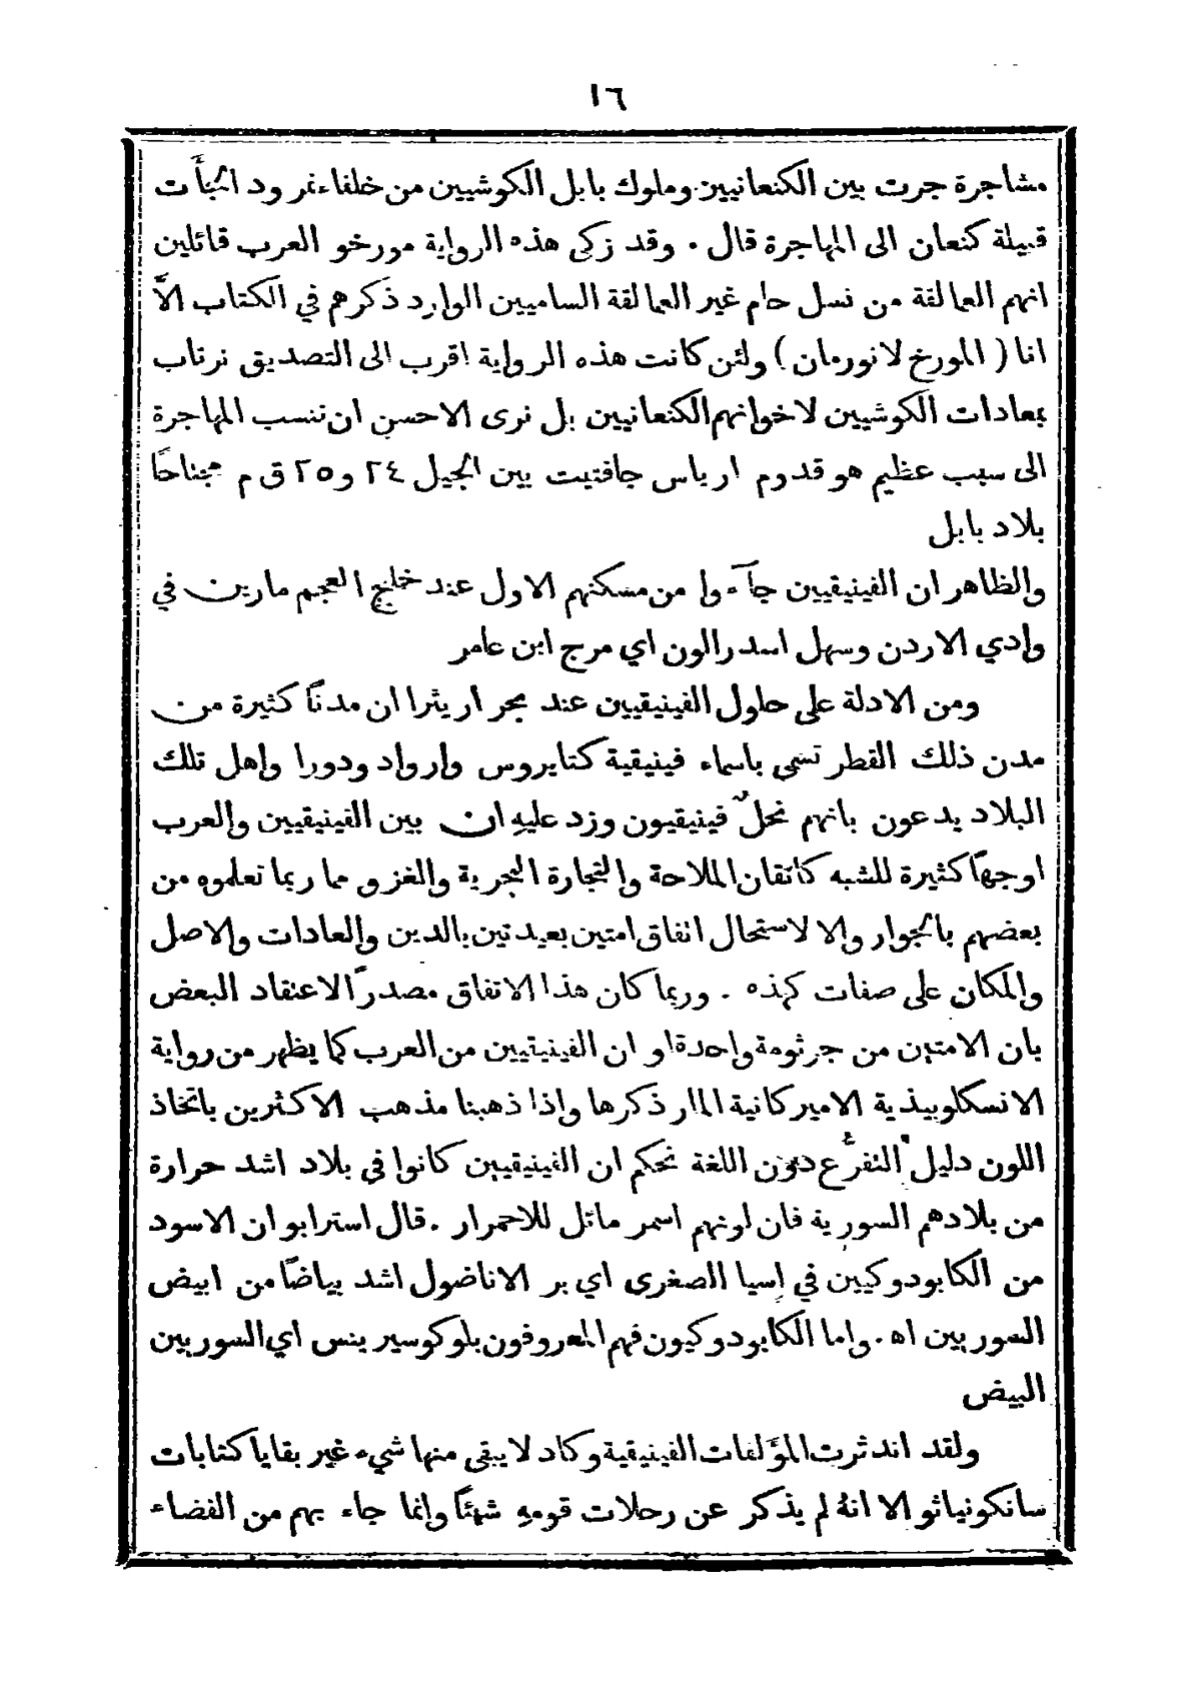 ١٦
مشاجرة جرت بين الكنعانيين وملوك بابل الكوشيين من خلفاء نمرود الجأَت
قبيلة كنعان الى المهاجرة قال . وقد زكى هذه الرواية مورخو العرب قائلين
انهم العمالقة من نسل حام غير العمالقة الساميين الوارد ذكرهم في الكتاب الاَّ
انا ( المورخ لانورمان ) ولئن كانت هذه الرواية اقرب الى التصديق نرتاب
بمعادات الكوشيين لاخوانهم الكنعانيين بل نرى الاحسن ان ننسب المهاجرة
الى سبب عظيم هو قدوم ارياس جافتيت بين الجيل ٢٤ و ٢٥ ق م مجتاحًا
بلاد بابل
والظاهر ان الفينيقيين جآءوا من مسكنهم الاول عند خليج العجم مارين في
وادي الاردن وسهل اسدرالون اي مرج ابن عامر
ومن الادلة على حلول الفينيقيين عند بحر اريثرا ان مدنًا كثيرة من
مدن ذلك القطر تسمى باسماء فينيقية كتايروس وارواد ودورا واهل تلك
البلاد يدعون بانهم نحلٌ فينيقيون وزد عليهِ ان بين الفينيقيين والعرب
اوجهًا كثيرة للشبه كاتقان الملاحة والتجارة البحرية والغزو مما ربما تعلموه من
بعضهم بالجوار والا لاستحال اتفاق امتين بعيدتين بالدين والعادات والاصل
والمكان على صفات كهذه . وربما كان هذا الاتفاق مصدرًا لاعتقاد البعض
بان الامتين من جرثومة واحدة او ان الفينيقيين من العرب كما يظهر من رواية
الانسكلوبيذية الاميركانية المار ذكرها واذا ذهبنا مذهب الاكثرين باتخاذ
اللون دليل التفرُّع دون اللغة نحكم ان الفينيقيين كانوا في بلاد اشد حرارة
من بلادهم السورية فان لونهم اسمر مائل للاحمرار . قال استرابو ان الاسود
من الكابودوكيين في اسيا الصغرى اي بر الاناضول اشد بياضًا من ابيض
السوريين اه . واما الكابودوكيون فهم المعروفون بلوكوسيرينس اي السوريين
البيض
ولقد اندثرت المؤَلفات الفينيقية وكاد لا يبقى منها شيء غير بقايا كتابات
سانكونياثو الا انهُ لم يذكر عن رحلات قومهِ شيئًا وانما جاء بهم من الفضاء